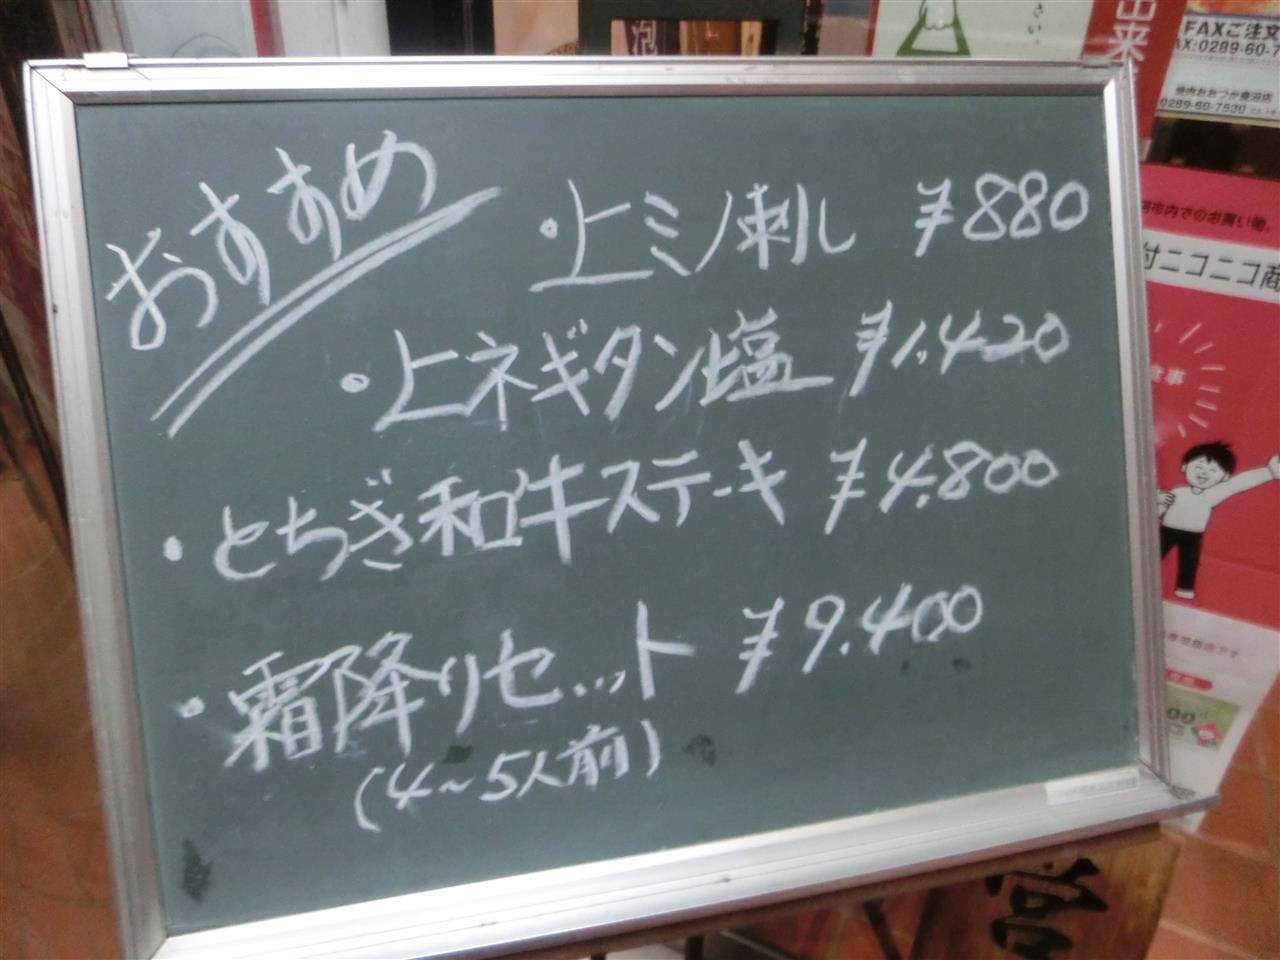 おすすめ
・上ミノ刺し ¥880
・上ネギタン塩 ¥1,420
・とちぎ和牛ステーキ ¥4,800
・霜降りセット ¥9,400
(4～5人前)
泡
さい。
出来
FAXご注文
AX:0289-60-7
焼肉おおつか鹿沼店
0289-60-7530
市内でのお買い物、
付ニコニコ商
食事
営